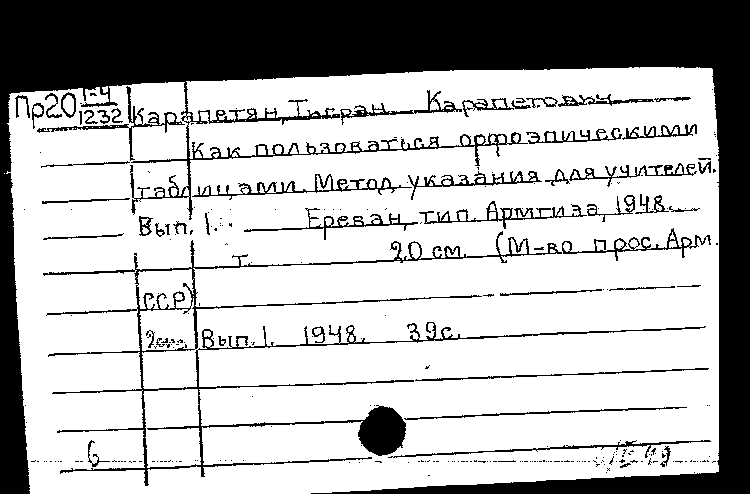 Пр20 1-4/1232
Карапетян, Тигран Карапетович
Как пользоваться орфоэпическими
таблицами. Метод. указания для учителей.
Вып. 1. Ереван, тип. Армгиза, 1948.
т. 20 см. (М-во прос. Арм.
ССР)
Вып. 1. 1948. 39с.
6